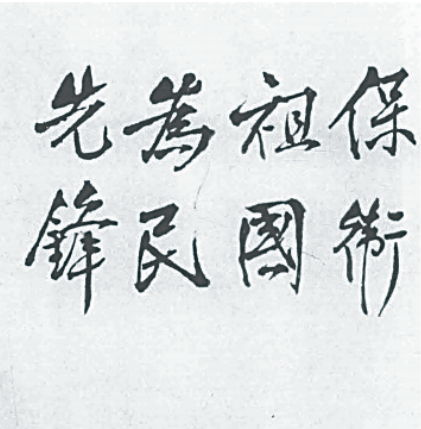 保衛
祖國
為民
先鋒